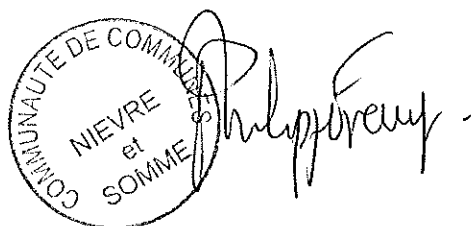 COMMUNAUTE DE COMMUNES
NIEVRE
et
SOMME
Philippe